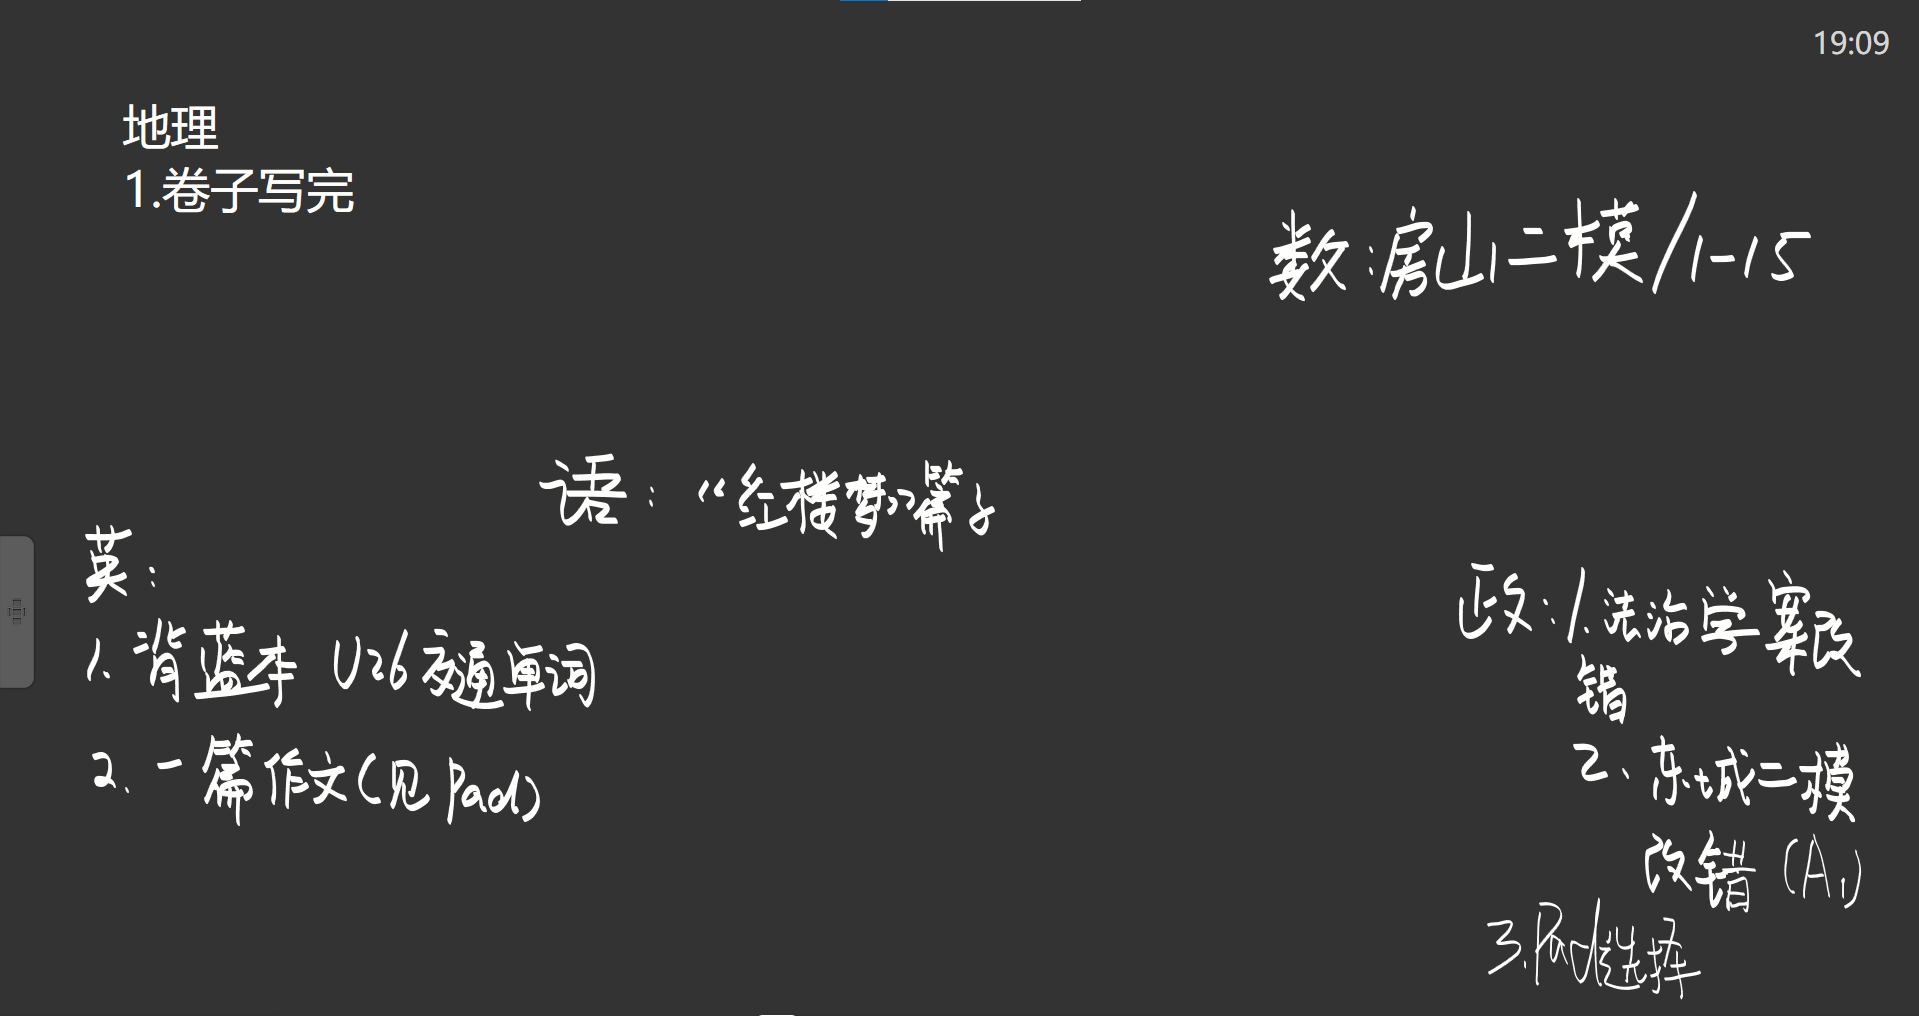 19:09
地理
1.卷子写完
数:房山二模/1-15
语:“红楼梦”篇子
英:
1.背蓝本 U26交通单词
2.一篇作文(见Pad)
政:1.法治学案改
错
2、东城二模
改错(A1)
3.Pad选择